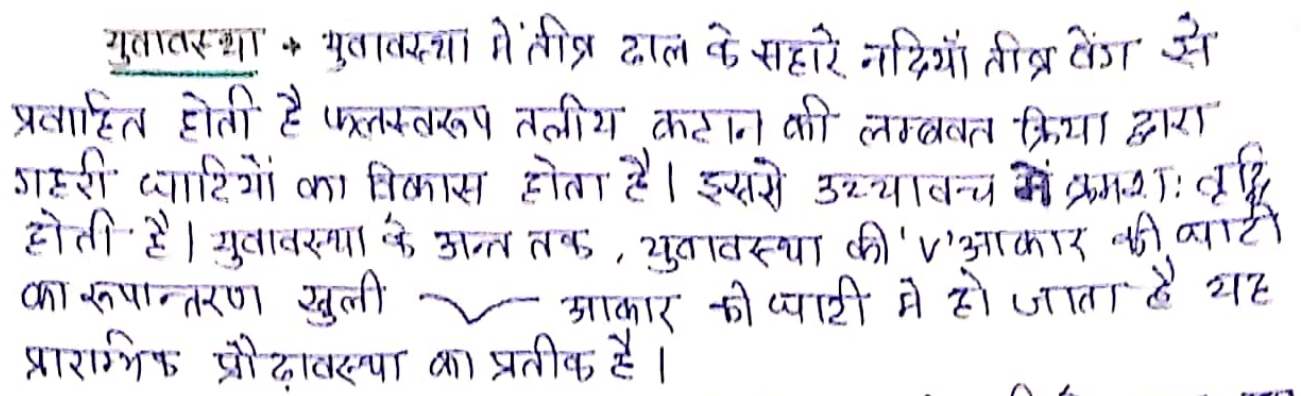 युवावस्था → युवावस्था में तीव्र ढाल के सहारे नदियाँ तीव्र वेग से
प्रवाहित होती है फलस्वरूप तलीय कटान की लम्बवत क्रिया द्वारा
गहरी घाटियों का विकास होता है। इससे उच्चावच्च में क्रमशः वृद्धि
होती है। युवावस्था के अन्त तक, युवावस्था की 'V' आकार की घाटी
का रूपान्तरण खुली आकार की घाटी मे हो जाता है यह
प्रारम्भिक प्रौढ़ावस्था का प्रतीक है।